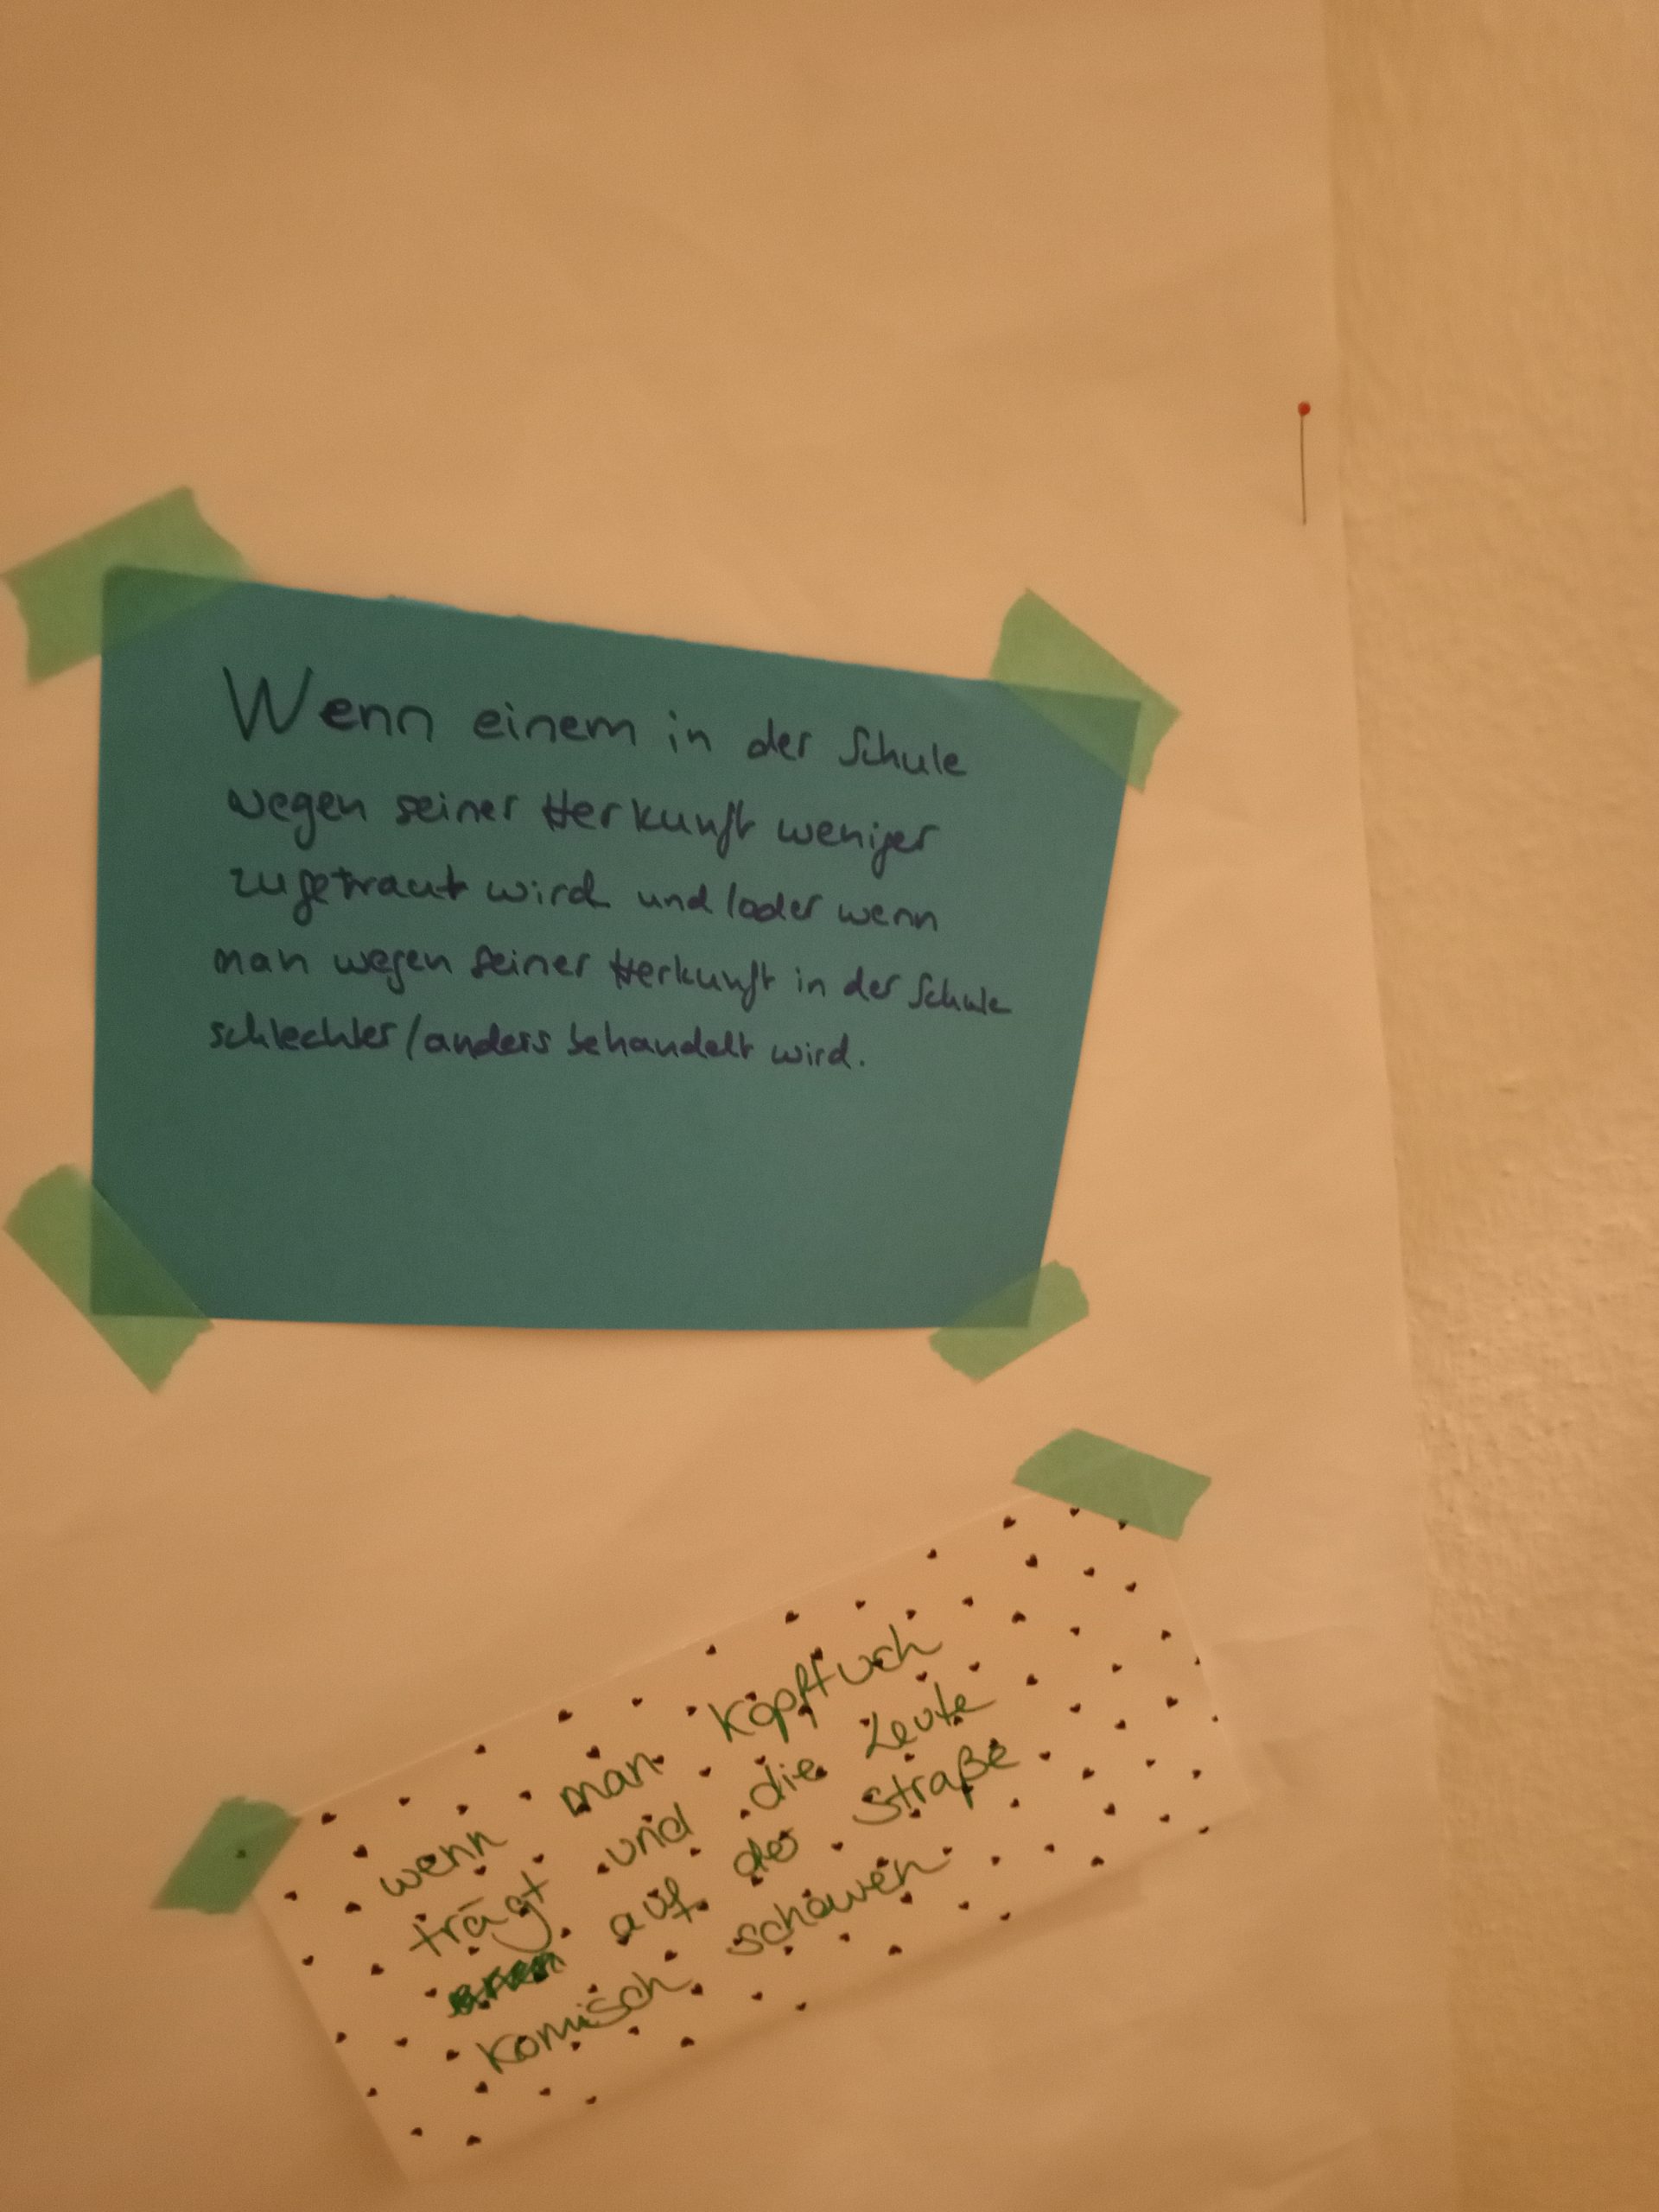 Wenn einem in der Schule
wegen seiner Herkunft weniger
zugetraut wird und/oder wenn
man wegen seiner Herkunft in der Schule
schlechter/anders behandelt wird.
wenn man Kopftuch
trägt und die Leute
auf der Straße
komisch schauen